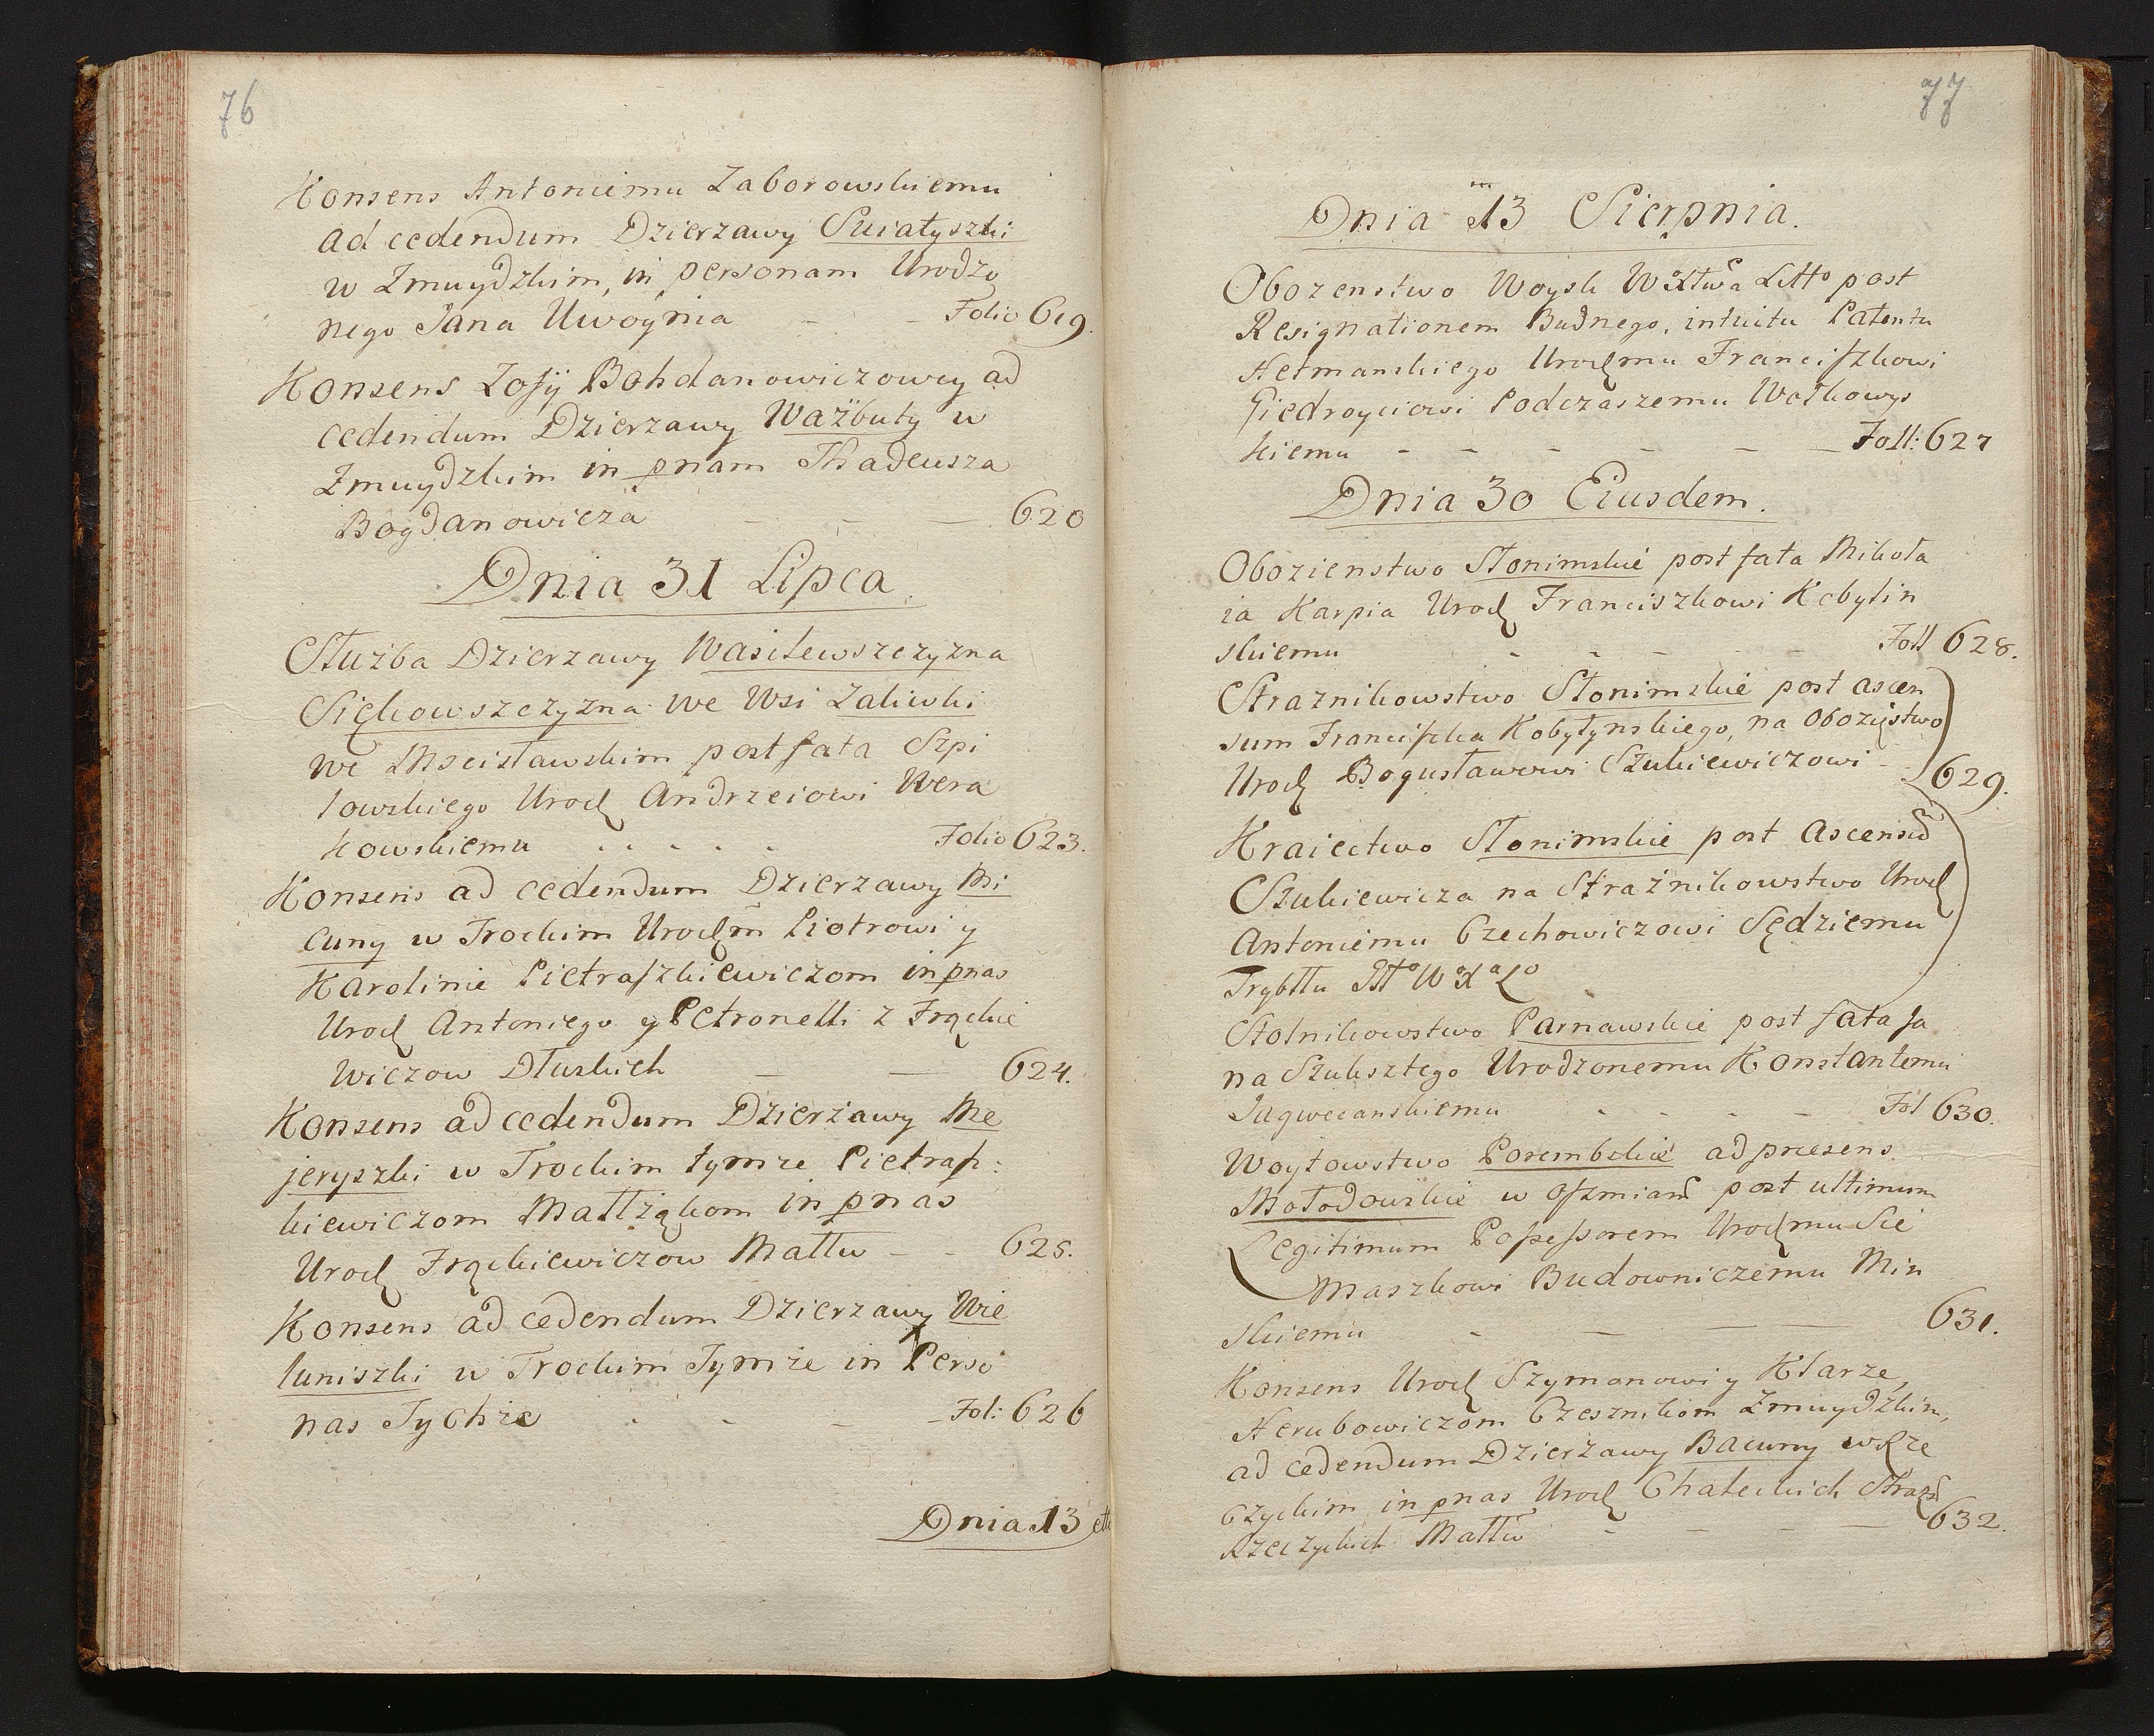 76
Konsens Antoniemu Zaborowskiemu
ad cedendum Dzierzawy Swiatyszki
w Zmuydzkim, in personam Urodzo
nego Jana Uwoynia - - Folio 619.
Konsens Zofij Bohdanowiczowey ad
cedendum DzierzawyWażbuty w
Zmuydzkim in pnam Thadeusza
Bogdanowicza - - - 620
Dnia 31 Lipca.
Służba Dzierzawy Wasilewszczyzna
Sięhowszczyzna we Wsi Zaliwki
we Mscisławskim post fata Szpi
lowskiego Urod Andrzeiowi Wera
kowskiemu . . - - - Folio 623.
Konsens ad cedendum Dzierzawy Mi
cuny w Trockim Urodm Piotrowi y
Karolinie Pietraszkiewiczom in pnas
Urod Antoniego y Petronelli z Frąckie
wiczow Dłuskich — — 624.
Konsens ad cedendum Dzierżawy Me
jeryszki w Trockim tymze Pietrasz:
kiewiczom Małżąkom in pnas
Urod Frąckiewiczow Małłw - - 625.
Konsens ad cedendum Dzierzawy Wie
luniszki w Trockim Tymże in Perso
nas Tychże . - - - Fol: 626
Dnia 13
77
Dnia 13 Sierpnia.
Obozenstwo Woysk Wxtwa Litto post
Resignationem Budnego, intuitu Patentu
Hetmanskiego Urodmu Franciszkowi
Giedroyciowi Podczaszemu Wołkowys
kiemu - - - - - - Foll: 627
Dnia 30 Eiusdem.
Obozienstwo Słonimskie post fata Mikoła
ia Karpia Urod Franciszkowi Kobylin
skiemu - - - - Foll 628.
Straznikowstwo Słonimskie post ascen
sum Franciszka Kobyłynskiego, na Obozistwo
Urod Bogusławowi Szukiewiczowi - 629.
Kraiectwo Słonimskie post Ascensu
Szukiewicza na Strażnikowstwo Urod
Antoniemu Czechowiczowi Sędziemu
Trybttu
Stolnikowstwo Parnawskie post fata Ja
na Szuksztego Urodzonemu Konstantemu
Jagwecanskiemu - - - - Fol 630.
Woytowstwo Porembskie ad præsens
Mołodowskie w Oszmians post ultimum
Legitimum Possessorem Urodmu Sie
maszkowi Budowniczemu Min
skiemu - — — — 631.
Konsens Urod Szymonowi y Klarze,
Nerubowiczom Czesznikom Zmuydzkim,
ad cedendum Dzierżawy Bacuny w Rze
czyckim in pnas Urod Chaleckich Straż
Rzeczyckich Małłw - - - — 632.